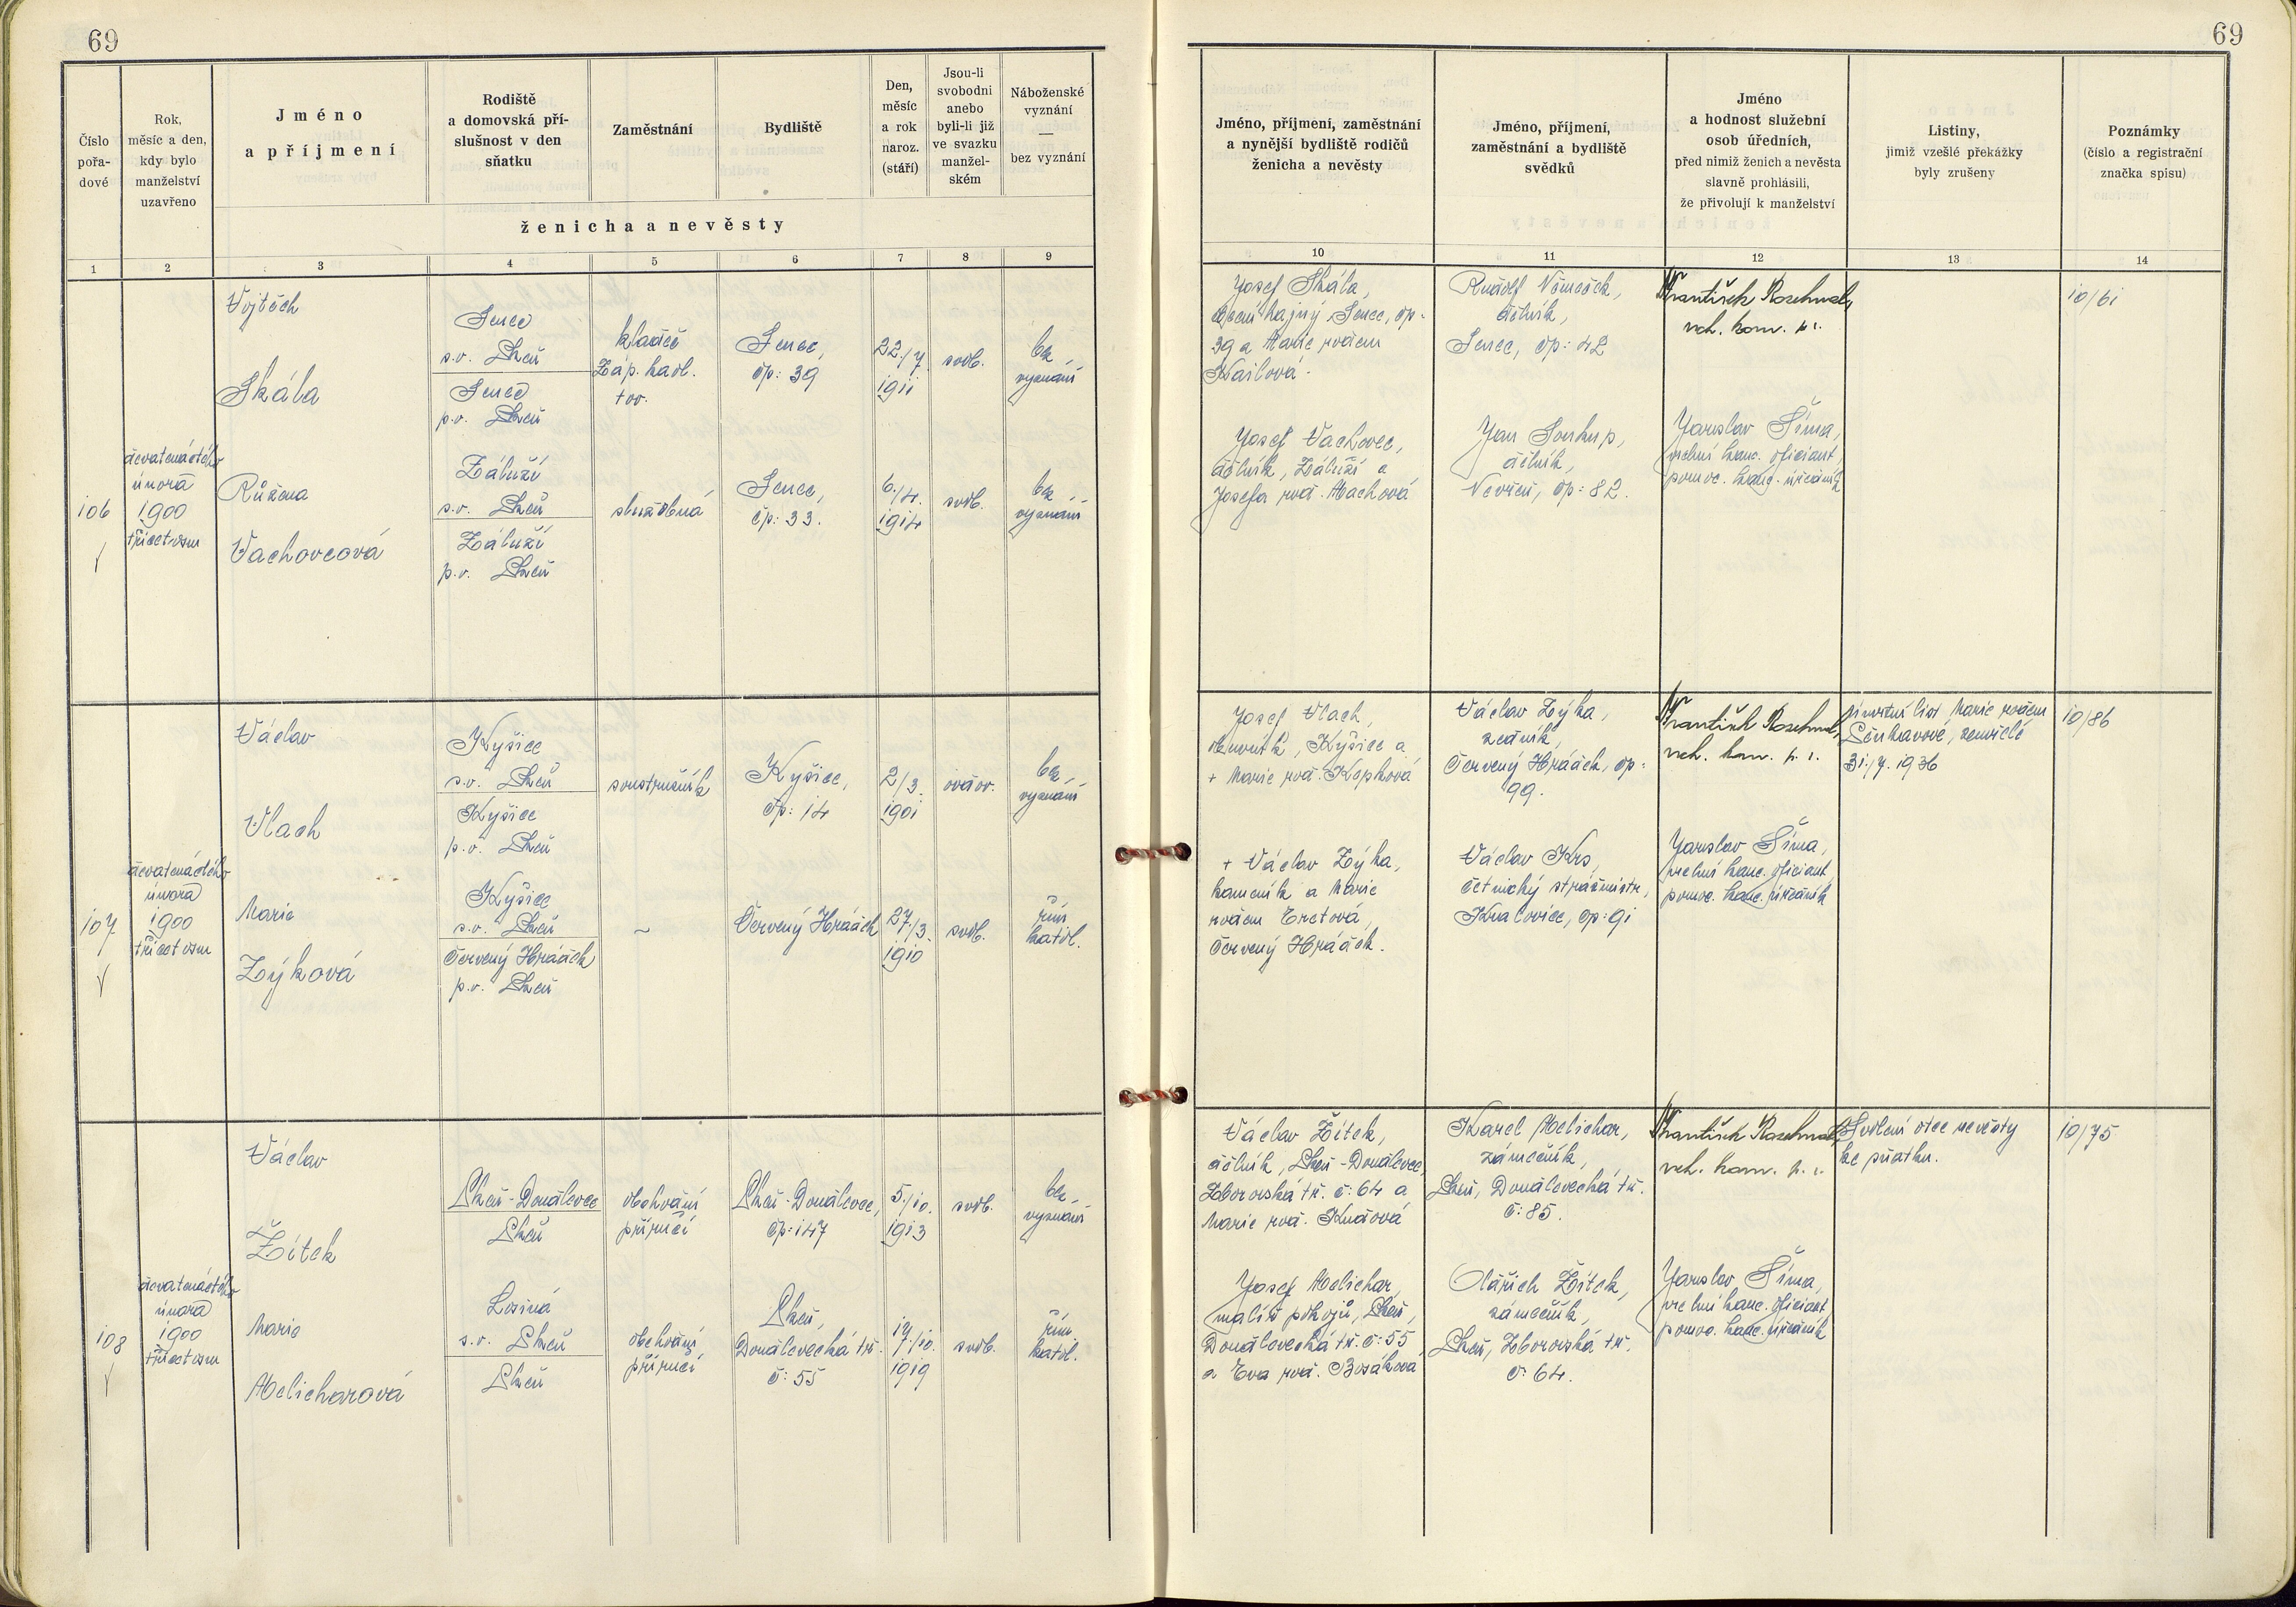 69
69
Číslo
pořa-
dové
Rok,
měsíc a den,
kdy bylo
manželství
uzavřeno
Jméno
a příjmení
Rodiště
a domovská pří-
slušnost v den
sňatku
Zaměstnání
Bydliště
Den,
měsíc
a rok
naroz.
(stáří)
Jsou-li
svobodni
anebo
byli-li již
ve svazku
manžel-
ském
Náboženské
vyznání
—
bez vyznání
ženicha a nevěsty
1 2 3 4 5 6 7 8 9
Jméno, příjmení, zaměstnání
a nynější bydliště rodičů
ženicha a nevěsty
Jméno, příjmení,
zaměstnání a bydliště
svědků
Jméno
a hodnost služební
osob úředních,
před nimiž ženich a nevěsta
slavně prohlásili,
že přivolují k manželství
Listiny,
jimiž vzešlé překážky
byly zrušeny
Poznámky
(číslo a registrační
značka spisu)
10 11 12 13 14
106
devatenáctého
února
1900
třicetosm
Vojtěch
Skála
Růžena
Vachovcová
Senec
s.o. Plzeň
Senec
p.o. Plzeň
Záluží
s.o. Plzeň
Záluží
p.o. Plzeň
kladeč
Záp. kadl.
tov.
služebná
Senec,
čp: 39
Senec,
čp: 33.
22./7.
1911
6./4.
1914
svob.
svob.
bez
vyznání
bez
vyznání
Josef Skála,
obecní hajný Senec, čp.
39 a Marie rodem
Josef Vachovec,
dělník, Záluží a
Josefa roz. Machová
Rudolf Němeček,
dělník,
Senec, čp: 42
Jan Soukup,
dělník,
Nevřeň, čp: 82.
František
vrch. kom. p. s.
Jaroslav Šíma,
vrchní kanc. oficiant,
pomoc. kanc. úředník
10/61
107
devatenáctého
února
1900
třicetosm
Václav
Vlach
Marie
Zýková
Kyšice
s.o. Plzeň
Kyšice
p.o. Plzeň
Kyšice
s.o. Plzeň
Červený Hrádek
p.o. Plzeň
soustružník
~
Kyšice,
čp: 14
Červený Hrádek
2/3.
1901
27/3.
1910
ovdov.
svob.
bez
vyznání
řím.
katol.
Josef Vlach,
Kyšice a
+ Marie roz. Kepková
+ Václav Zýka,
kameník a Marie
rodem
Červený Hrádek.
Václav Zýka,
zedník,
Červený Hrádek, čp:
99.
Václav Krs,
četnický strážmistr,
Kralovice, čp: 91
František
vrch. kom. p. s.
Jaroslav Šíma,
vrchní kanc. oficiant
pomoc. kanc. úředník
Úmrtní list Marie rodem
zemřelé
31./7. 1936
10/86
108
devatenáctého
února
1900
třicetosm
Václav
Žítek
Marie
Melicharová
Plzeň-Doudlevce
Plzeň
Losiná
s.o. Plzeň
Plzeň
obchodní
příručí
obchodní
příručí
Plzeň-Doudlevce,
čp: 147
Plzeň,
Doudlevecká tř.
č: 55
5./10.
1913
17./10.
1919
svob.
svob.
bez
vyznání
řím.
katol.
Václav Žítek,
dělník, Plzeň-Doudlevce
Zborovská tř. č: 64 a
Marie roz.
Josef Melichar,
malíř pokojů, Plzeň,
Doudlevecká tř. č: 55
a Eva roz. Bosáková
Karel Melichar,
zámečník,
Plzeň, Doudlevecká tř.
č: 85.
Oldřich Žítek,
zámečník,
Plzeň, Zborovská tř.
č: 64.
František
vrch. kom. p. s.
Jaroslav Šíma,
vrchní kanc. oficiant
pomoc. kanc. úředník
Svolení otce nevěsty
ke sňatku.
10/75